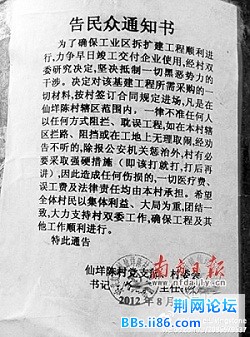 告民众通知书
为了确保工业区拆扩建工程顺利进
行,力争早日竣工交付企业使用,经村双
委研究决定,坚决抵制一切黑恶势力的
干涉。决定对该基建工程所需采购的一
切材料,按村签订合同规定进场,凡是在
仙垟陈村辖区范围内,一律不准任何人
以任何方式阻拦、耽误工程,如在本村辖
区拦路、阻挡或在工地上无理取闹,经劝
告不听的,除报公安机关惩治外,村有必
要采取强硬措施(即该打就打,打后再
讲),因此造成任何伤损的,一切医疗费、
误工费及法律责任均由本村承担。希望
全体村民以集体利益、大局为重,团结一
致,大力支持村双委工作,确保工程及其
他工作顺利进行。
特此通告
仙垟陈村党支部 村委会
书记 主任
2012年8月
南方日报
www.nfdaily.cn
荆网论坛
BBs.ii86.com